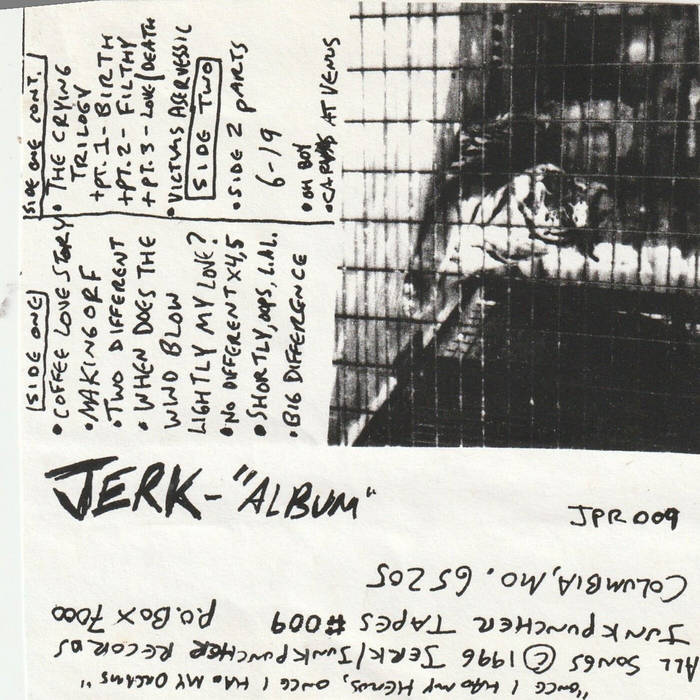 SIDE ONE
• COFFEE LOVE STORY
• MAKING ORF
• TWO DIFFERENT
• WHEN DOES THE
WIND BLOW
LIGHTLY MY LOVE?
• NO DIFFERENT X4,5
• SHORTLY, OOPS, L.A.L.
• BIG DIFFERENCE
SIDE ONE CONT.
• THE CRYING
TRILOGY
+PT. 1 - BIRTH
+PT. 2 - FILTHY
+PT. 3 - LOVE/DEATH
• VICTIMS AGGRVESSIC
SIDE TWO
• SIDE 2 PARTS
6-19
• OH BOY
AT VENUS
JERK - "ALBUM"
JPR 009
"ONCE I HAD MY HEROS, ONCE I HAD MY DREAMS"
ALL SONGS © 1996 JERK/JUNKPUNCHER RECORDS
JUNKPUNCHER TAPES #009 P.O. BOX 7000
COLUMBIA, MO. 65205